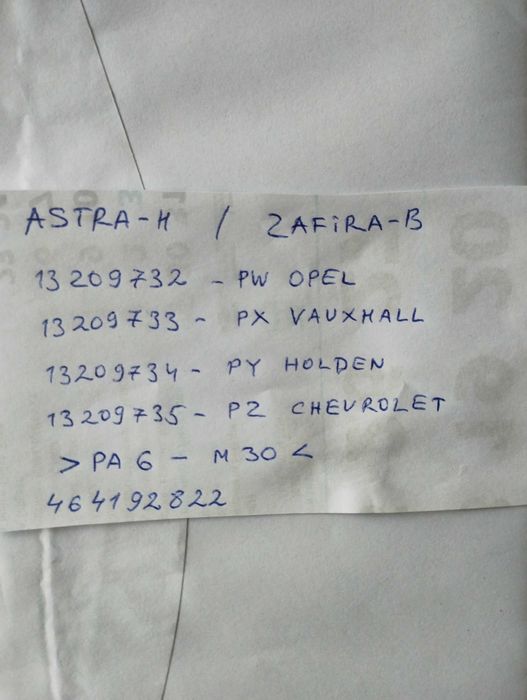 ASTRA-H / ZAFiRA-B
13209732 - PW OPEL
13209733 - PX VAUXHALL
13209734 - PY HOLDEN
13209735 - PZ CHEVROLET
>PA 6 - M 30<
464192822